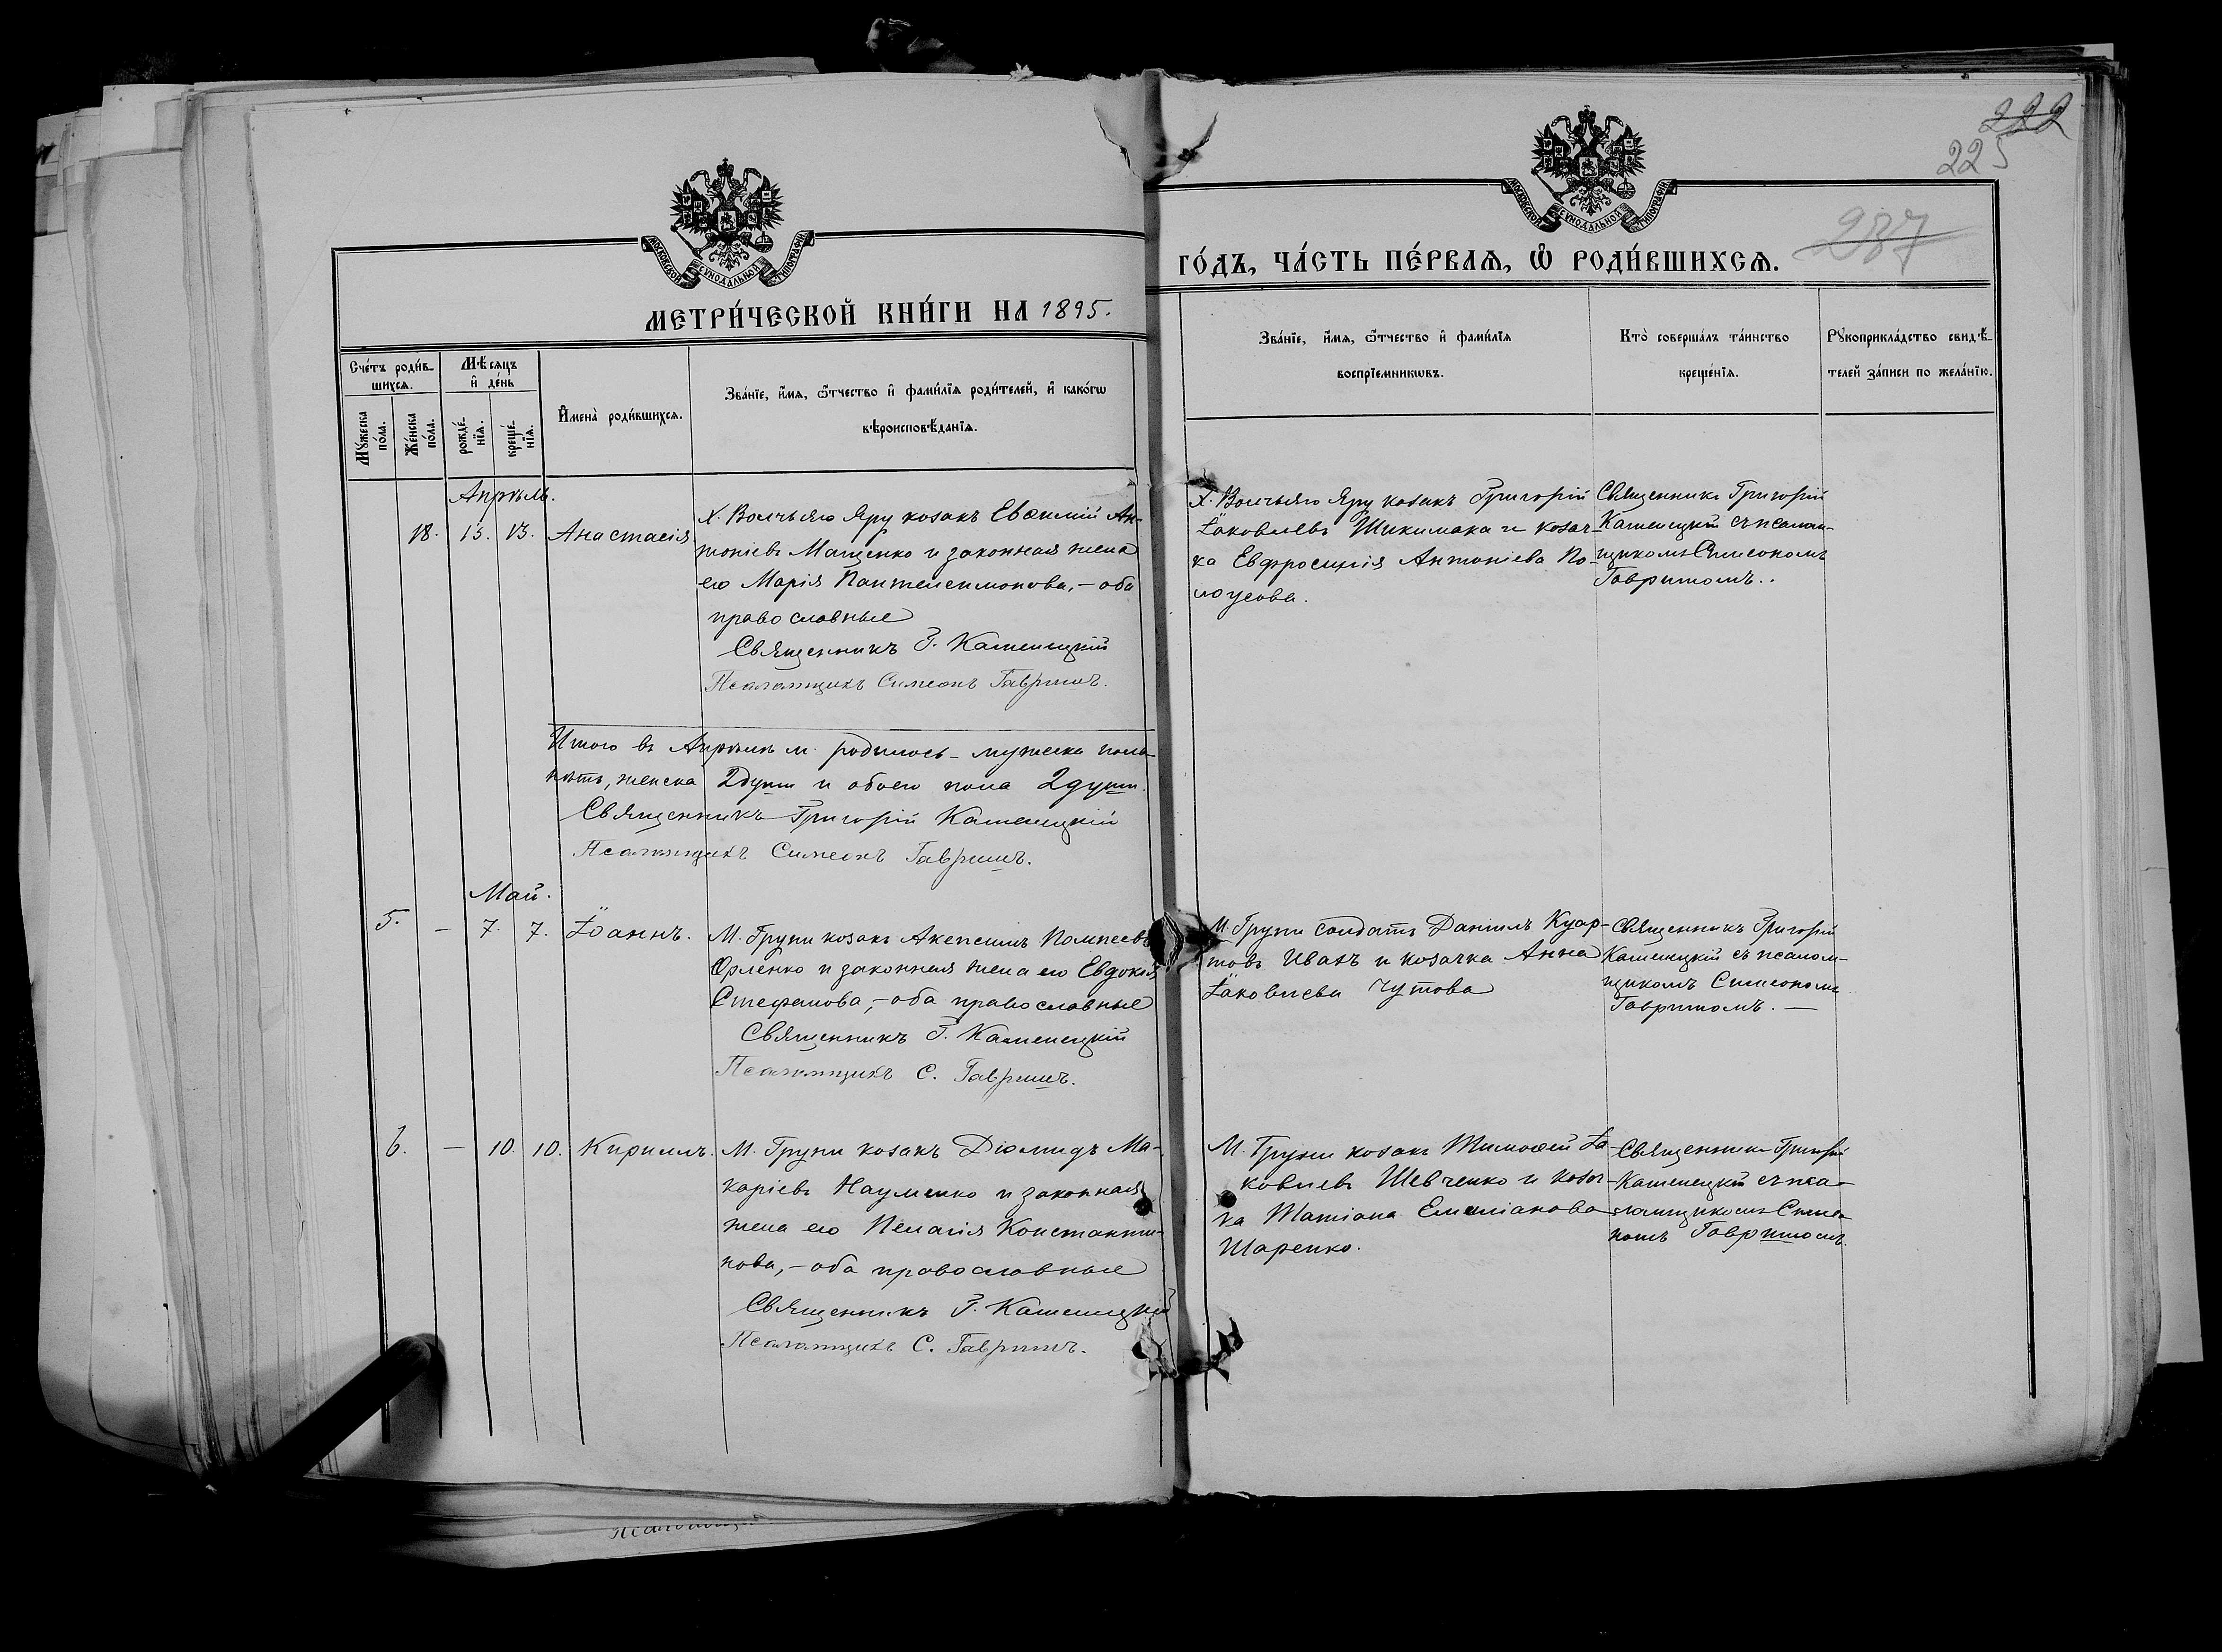 222
225
287
МОСКОВСКОЙ СѴНОДАЛЬНОЙ ТИПОГРАФІИ
МОСКОВСКОЙ СѴНОДАЛЬНОЙ ТИПОГРАФІИ
МЕТРИ́ЧЕСКОЙ КНИ́ГИ НА 1895.
ГО́ДЪ, ЧА́СТЬ ПЕ́РВАѦ, Ѿ РОДИ́ВШИХСѦ.
Сче́тъ роди́в-
шихсѧ.
Мꙋжеска
по́ла.
Же́нска
по́ла.
Мѣ́сѧцъ
и҆ де́нь
рожде́-
нїѧ.
креще́-
нїѧ.
И҆мена̀ роди́вшихсѧ.
Зва́нїе, и҆́мѧ, ѻ҆́тчество и҆ фами́лїѧ роди́телей, и҆ како́гѡ
вѣроисповѣ́данїѧ.
Зва́нїе, и҆́мѧ, ѻ҆́тчество и҆ фами́лїѧ
воспрїе́мникѡвъ.
Кто̀ соверша́лъ та́инство
креще́нїѧ.
Рꙋкоприкла́дство свидѣ́-
телей за́писи по жела́нїю.
Апрѣль.
18. 13. 13. Анастасія
Х. Волчьяго Яру козакъ Евѳимій Ан-
тоніевъ Мащенко и законная жена
его Марія Пантелеимонова, – оба
православные
Священникъ Г. Каменецкій
Псаломщикъ Симеонъ Гавришъ.
Х. Волчьяго Яру козакъ Григорій
Іаковлевъ Шикимака и козач-
ка Евфросинія Антоніева По-
лоусова.
Священникъ Григорій
Каменецкій съ псалом-
щикомъ Симеономъ
Гавришомъ.
Итого въ Апрѣлѣ м. родилось – мужеска пола
нѣтъ, женска 2 души и обоего пола 2 души.
Священникъ Григорій Каменецкій
Псаломщикъ Симеонъ Гавришъ.
Май.
5. – 7. 7. Іоаннъ.
М. Груни козакъ Акепсимъ Помпеевъ
Орленко и законная жена его Евдокія
Стефанова, – оба православные
Священникъ Г. Каменецкій
Псаломщикъ С. Гавришъ.
М. Груни солдатъ Даніилъ Куар-
товъ Ивахъ и козачка Анна
Іаковлева Чутова
Священникъ Григорій
Каменецкій съ псалом-
щикомъ Симеономъ
Гавришомъ. –
6. – 10. 10. Кириллъ.
М. Груни козакъ Діомидъ Ма-
каріевъ Науменко и законная
жена его Пелагія Константи-
нова, – оба православные
Священникъ Г. Каменецкій
Псаломщикъ С. Гавришъ.
М. Груни козакъ Тимоѳей Іа-
ковлевъ Шевченко и козач-
ка Татіана Емиліанова
Шаренко.
Священникъ Григорій
Каменецкій съ пса-
ломщикомъ Симео-
номъ Гавришомъ.